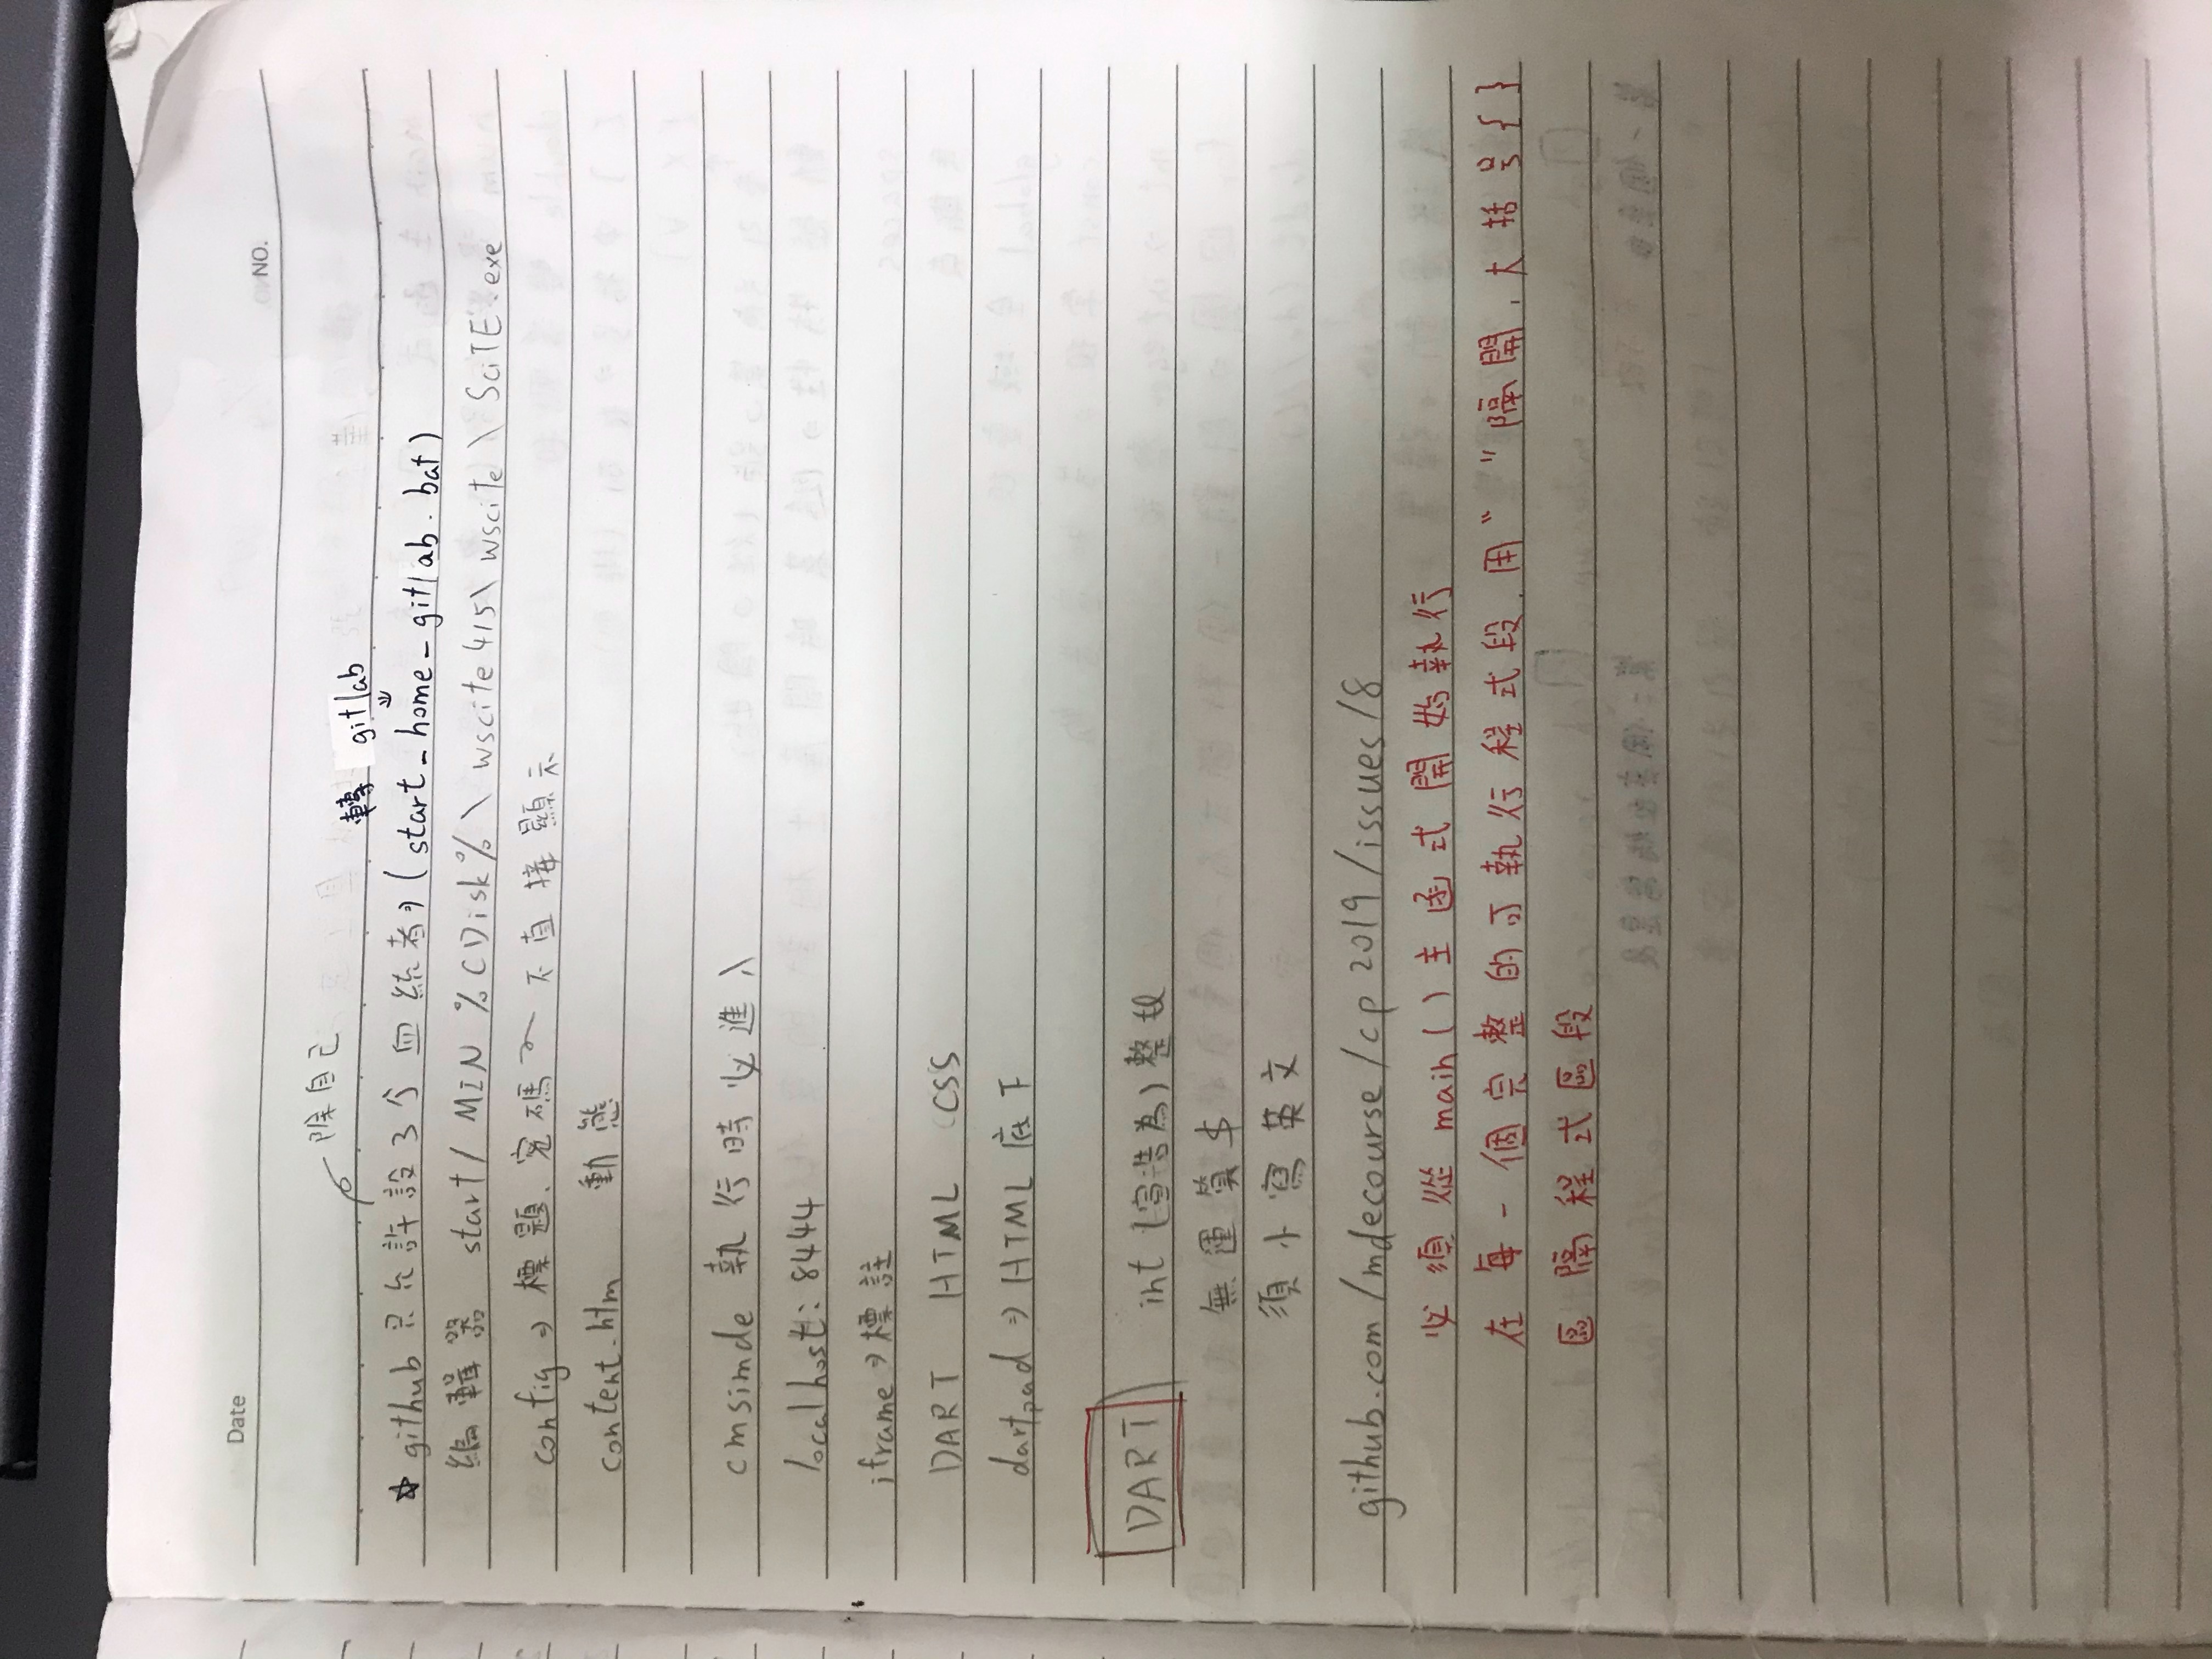 Date
NO.
除自己
轉 gitlab
☆ github 只允許設3个 統者⇒(start_home_gitlab.bat)
編輯器 start/ MIN %CDisk% \ wscite415\ wscite \ SciTE.exe
config ⇒ 標題、密碼～不直接顯示
content.htm 動態
cmsimde 執行時必進入
localhost: 8444
iframe ⇒ 標註
DART HTML CSS
dartpad ⇒ HTML 底下
DART int (宣告為) 整
無運算$
須小寫英文
github.com/mdecourse/cp2019/issues/8
必須從 main()主函式開始執行
在每一個完整的可執行程式段.用“ ”隔開,大括号{}
區隔程式區段